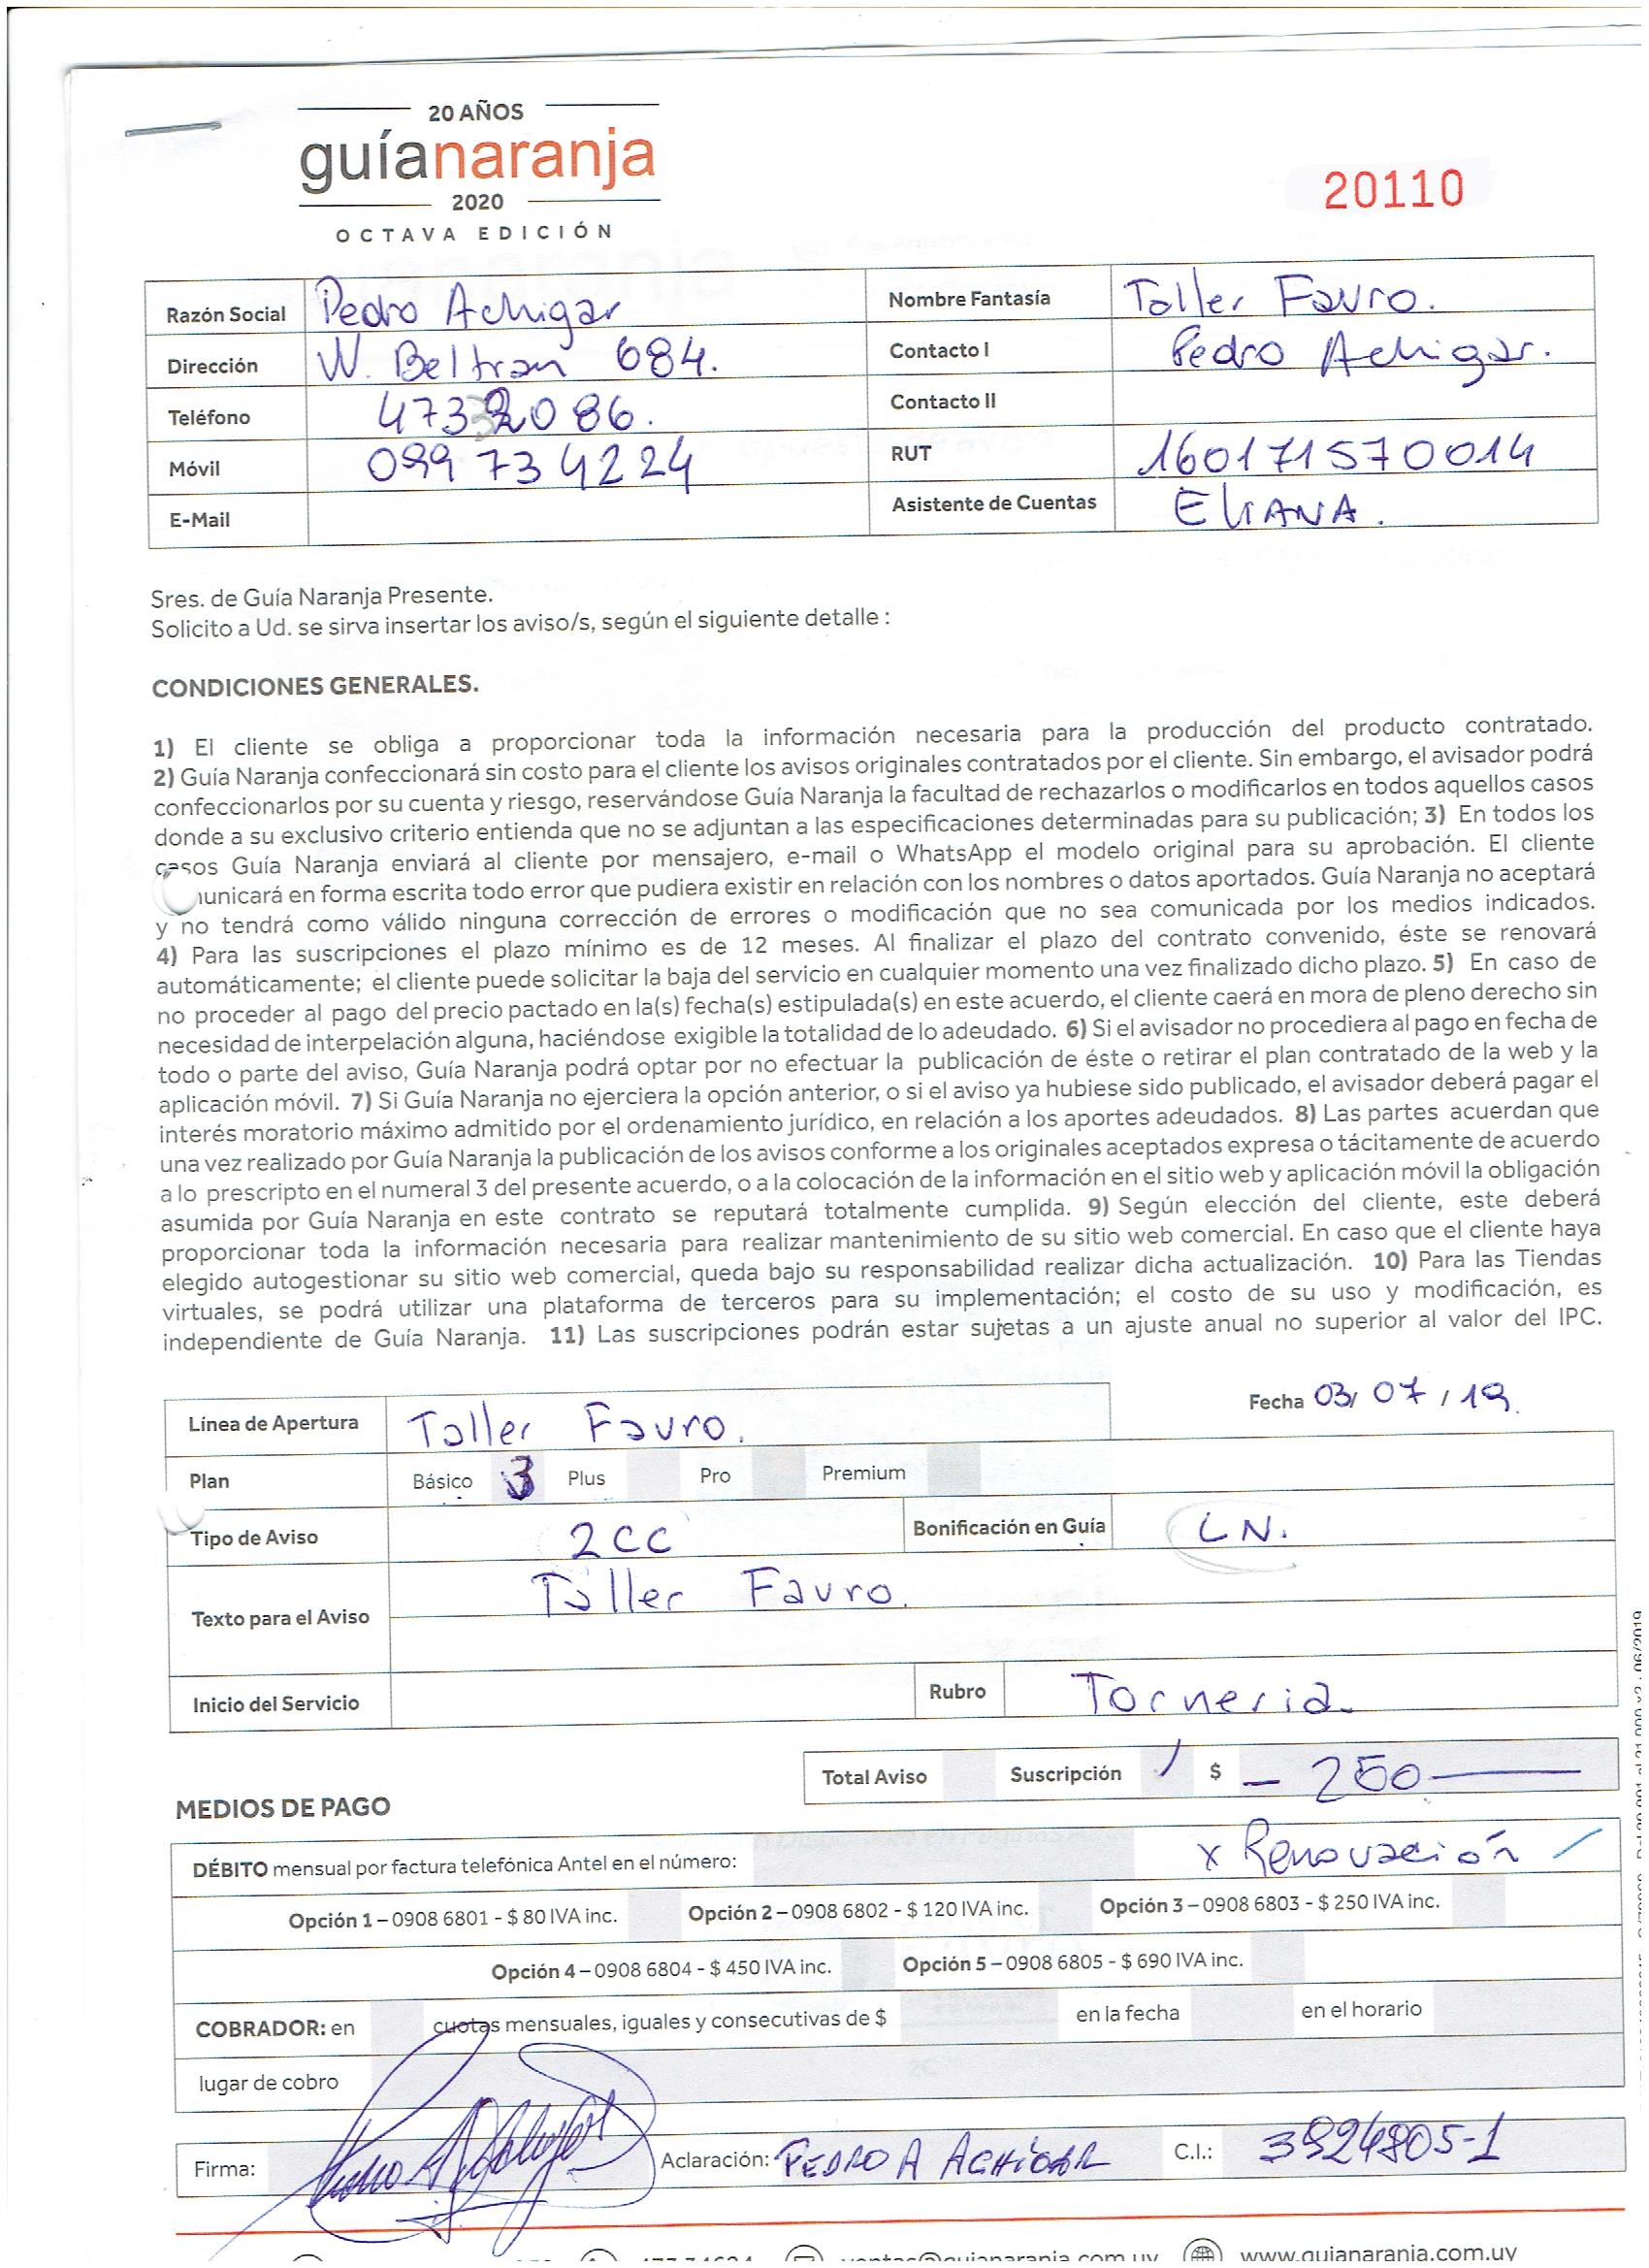 20 AÑOS
guíanaranja
2020
OCTAVA EDICIÓN
20110
Razón Social Pedro Achigar Nombre Fantasía Taller Favro.
Dirección W. Beltran 684. Contacto I Pedro Achigar.
Teléfono 473 2086. Contacto II
Móvil 099 734224 RUT 160171570014
E-Mail Asistente de Cuentas ELIANA.
Sres. de Guía Naranja Presente.
Solicito a Ud. se sirva insertar los aviso/s, según el siguiente detalle :
CONDICIONES GENERALES.
1) El cliente se obliga a proporcionar toda la información necesaria para la producción del producto contratado.
2) Guía Naranja confeccionará sin costo para el cliente los avisos originales contratados por el cliente. Sin embargo, el avisador podrá
confeccionarlos por su cuenta y riesgo, reservándose Guía Naranja la facultad de rechazarlos o modificarlos en todos aquellos casos
donde a su exclusivo criterio entienda que no se adjuntan a las especificaciones determinadas para su publicación; 3) En todos los
casos Guía Naranja enviará al cliente por mensajero, e-mail o WhatsApp el modelo original para su aprobación. El cliente
unicará en forma escrita todo error que pudiera existir en relación con los nombres o datos aportados. Guía Naranja no aceptará
y no tendrá como válido ninguna corrección de errores o modificación que no sea comunicada por los medios indicados.
4) Para las suscripciones el plazo mínimo es de 12 meses. Al finalizar el plazo del contrato convenido, éste se renovará
automáticamente; el cliente puede solicitar la baja del servicio en cualquier momento una vez finalizado dicho plazo. 5) En caso de
no proceder al pago del precio pactado en la(s) fecha(s) estipulada(s) en este acuerdo, el cliente caerá en mora de pleno derecho sin
necesidad de interpelación alguna, haciéndose exigible la totalidad de lo adeudado. 6) Si el avisador no procediera al pago en fecha de
todo o parte del aviso, Guía Naranja podrá optar por no efectuar la publicación de éste o retirar el plan contratado de la web y la
aplicación móvil. 7) Si Guía Naranja no ejerciera la opción anterior, o si el aviso ya hubiese sido publicado, el avisador deberá pagar el
interés moratorio máximo admitido por el ordenamiento jurídico, en relación a los aportes adeudados. 8) Las partes acuerdan que
una vez realizado por Guía Naranja la publicación de los avisos conforme a los originales aceptados expresa o tácitamente de acuerdo
a lo prescripto en el numeral 3 del presente acuerdo, o a la colocación de la información en el sitio web y aplicación móvil la obligación
asumida por Guía Naranja en este contrato se reputará totalmente cumplida. 9) Según elección del cliente, este deberá
proporcionar toda la información necesaria para realizar mantenimiento de su sitio web comercial. En caso que el cliente haya
elegido autogestionar su sitio web comercial, queda bajo su responsabilidad realizar dicha actualización. 10) Para las Tiendas
virtuales, se podrá utilizar una plataforma de terceros para su implementación; el costo de su uso y modificación, es
independiente de Guía Naranja. 11) Las suscripciones podrán estar sujetas a un ajuste anual no superior al valor del IPC.
Fecha 03/ 07 / 19.
Línea de Apertura Taller Favro.
Plan Básico 3 Plus Pro Premium
Tipo de Aviso 2CC Bonificación en Guía LN.
Texto para el Aviso Taller Favro.
Inicio del Servicio Rubro Torneria.
Total Aviso Suscripción / $ - 250 —
MEDIOS DE PAGO
DÉBITO mensual por factura telefónica Antel en el número: x Renovación /
Opción 1 – 0908 6801 - $ 80 IVA inc. Opción 2 – 0908 6802 - $ 120 IVA inc. Opción 3 – 0908 6803 - $ 250 IVA inc.
Opción 4 – 0908 6804 - $ 450 IVA inc. Opción 5 – 0908 6805 - $ 690 IVA inc.
COBRADOR: en cuotas mensuales, iguales y consecutivas de $ en la fecha en el horario
lugar de cobro
Firma: Aclaración: PEDRO A ACHIGAR C.I.: 3924805-1
www.guianaranja.com.uy